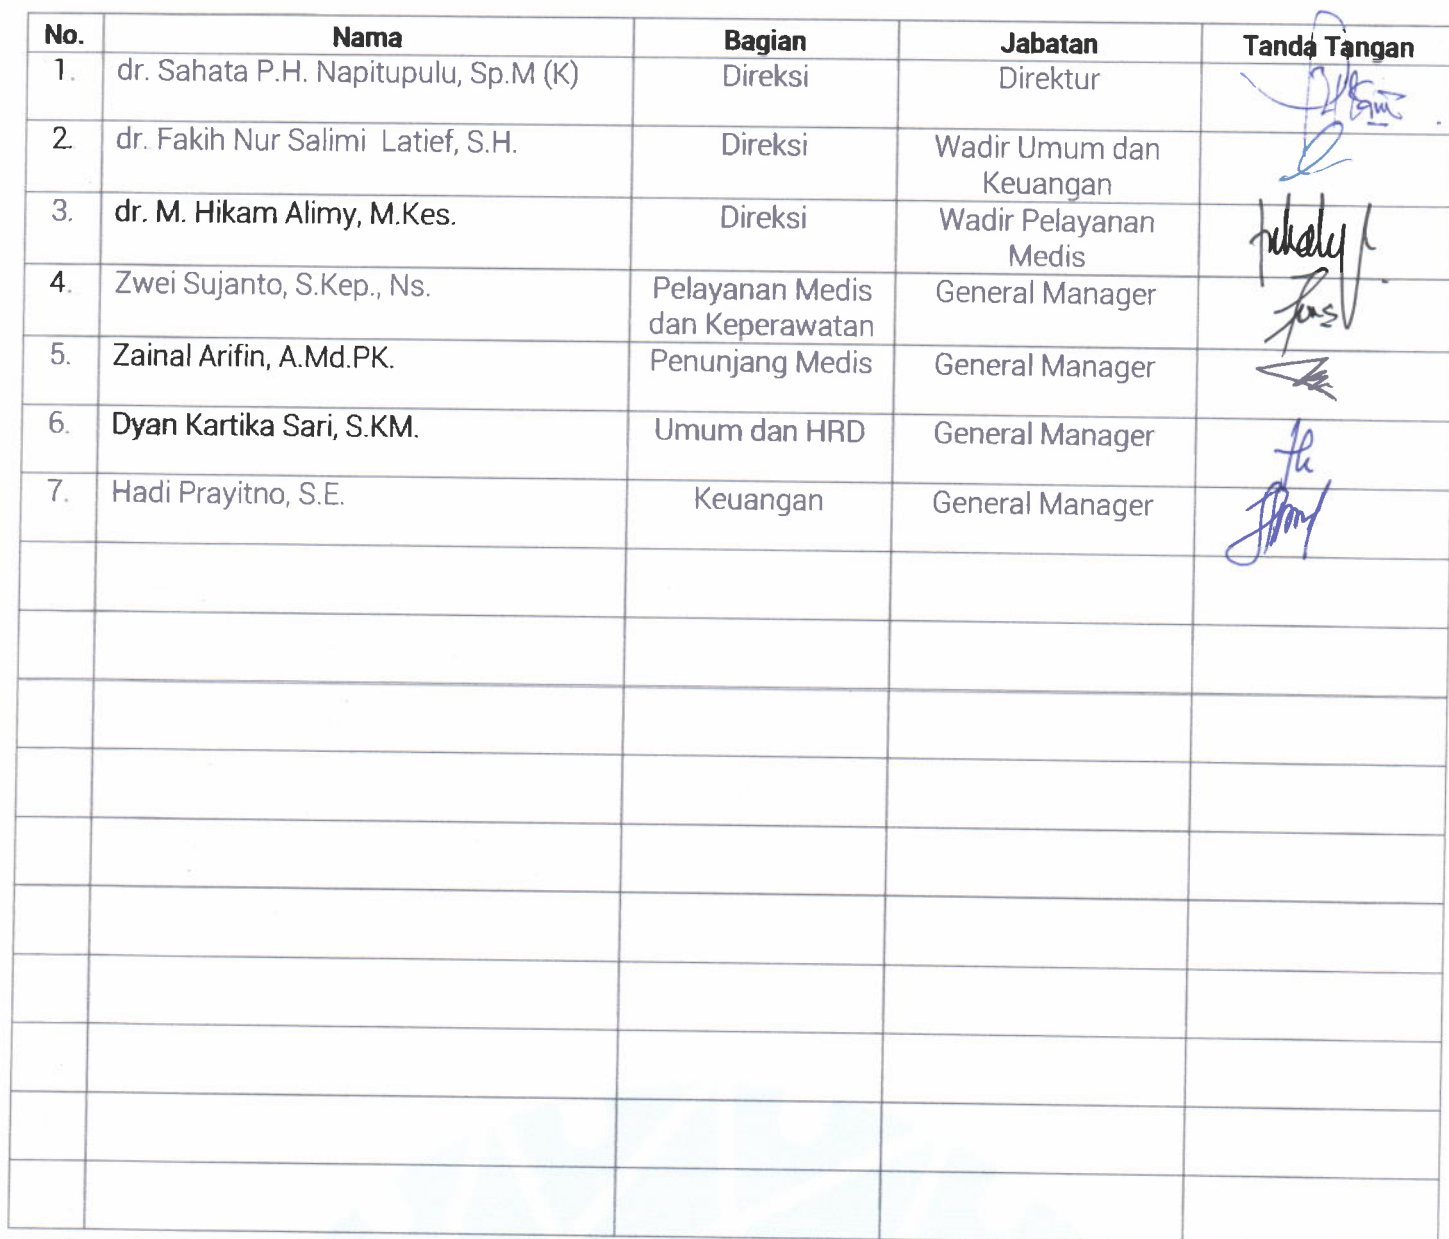 No. Nama Bagian Jabatan Tanda Tangan
1. dr. Sahata P.H. Napitupulu, Sp.M (K) Direksi Direktur
2. dr. Fakih Nur Salimi Latief, S.H. Direksi Wadir Umum dan
Keuangan
3. dr. M. Hikam Alimy, M.Kes. Direksi Wadir Pelayanan
Medis
4. Zwei Sujanto, S.Kep., Ns. Pelayanan Medis General Manager
dan Keperawatan
5. Zainal Arifin, A.Md.PK. Penunjang Medis General Manager
6. Dyan Kartika Sari, S.KM. Umum dan HRD General Manager
7. Hadi Prayitno, S.E. Keuangan General Manager